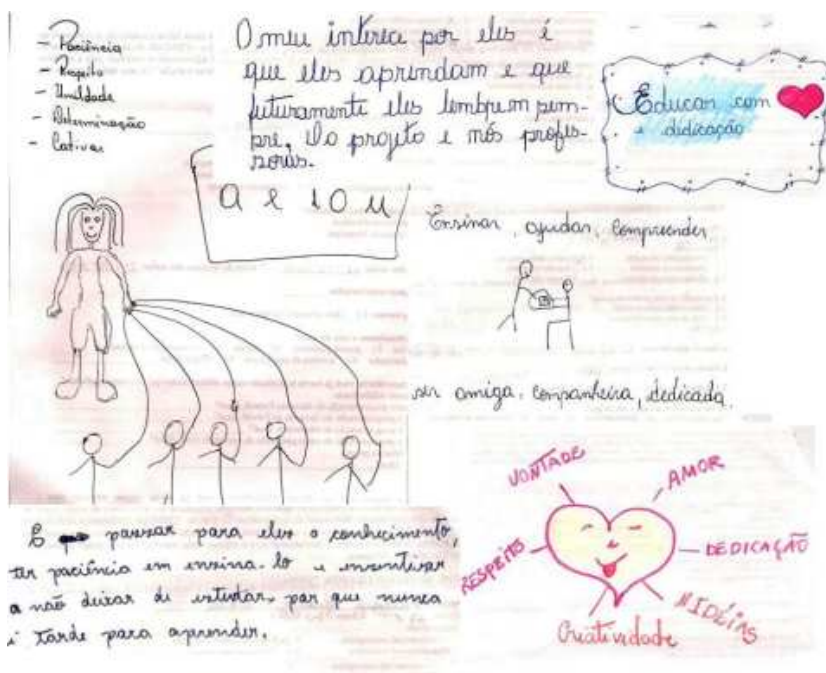 - Paciência
- Respeito
- Umildade
- Determinação
- Cativar
O meu interece por eles é
que eles aprendam e que
futuramente eles lembrem sem-
pre, do projeto e nós profes-
soras.
Educar com
e didicação
a e i o u
Ensinar, ajudar, compreender,
ser amiga, companheira, dedicada.
É passar para eles o conhecimento,
ter paciência em ensina-lo e insentivar
a não deixar de estudar, por que nunca
é tarde para aprender.
VONTADE
AMOR
RESPEITO
DEDICAÇÃO
IDÉIAS
Criatividade